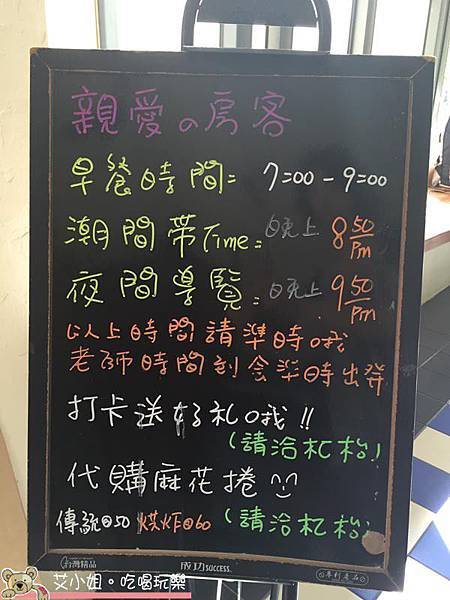 親愛の房客
早餐時間= 7:00-9:00
潮間帶Time= 晚上 8 50 Pm
夜間導覽= 晚上 9 50 Pm
以上時間請準時哦
老師時間到會準時出發
打卡送好礼哦!!
(請洽柜枱)
代購麻花捲
傳統@50 烘炸@60 (請洽柜枱)
台灣精品 成功SUCCESS. 專利產品
艾小姐。吃喝玩樂